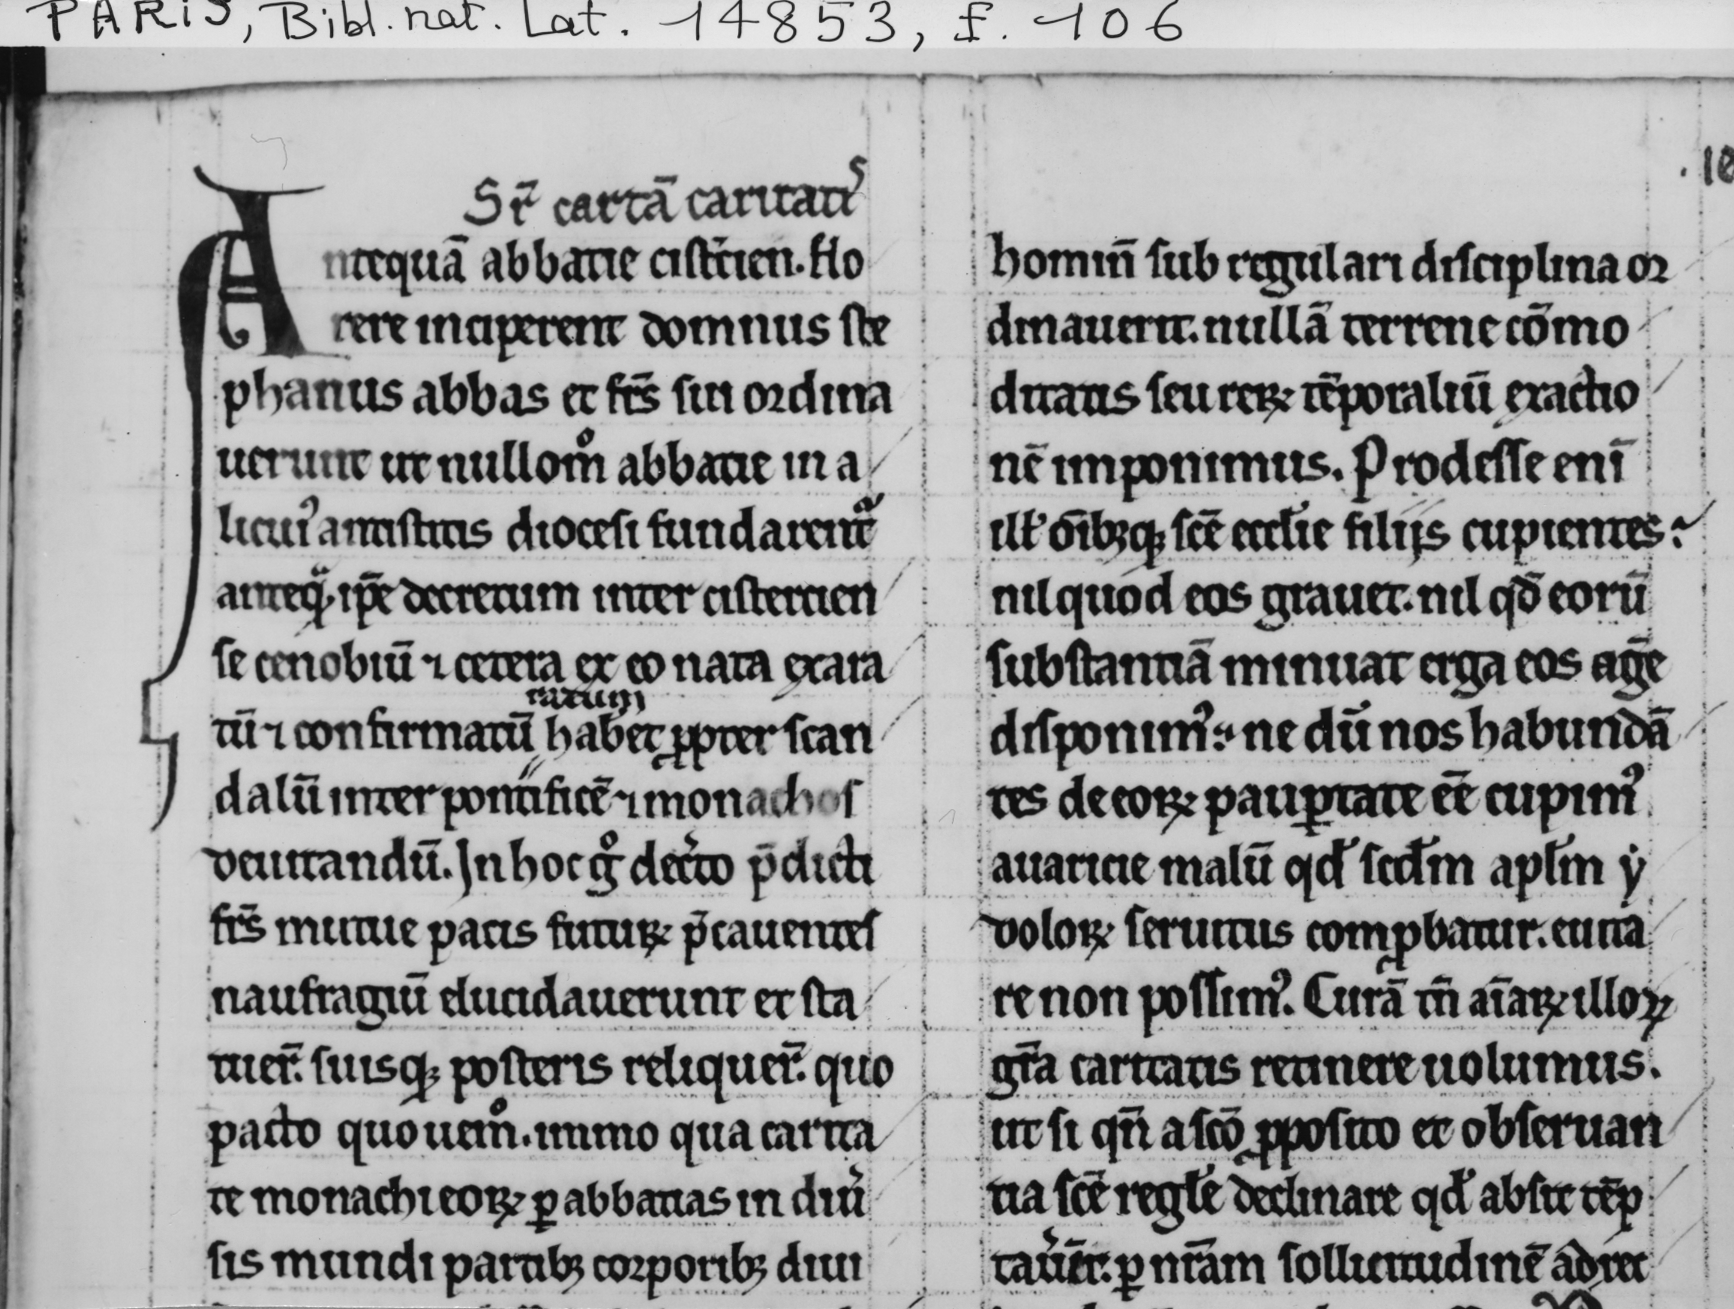 PARIS, Bibl. nat. Lat. 14853, f. 106
.10
Sr̄ cartā caritatis
Antequā abbatie cistercien. flo
rere inciperent domnus ste
phanus abbas et fr̄s sui ordina
uerunt ut nullom̊ abbatie in a
licui᾽ antistitis diocesi fundarent᷑
anteqͣ ip̄e decretum inter cistercien
se cenobiū ⁊ cetera ex eo nata exara
tū ⁊ confirmatū ratum habet ꝓpter scan
dalū inter pontificē ⁊ monachos
deuitandū. In hoc gͦ dec̾to p̄dicti
fr̄s mutue pacis futurꝝ p̄cauentes
naufragiū elucidauerunt et sta
tuer̄. suisqꝫ posteris reliquer̄. quo
pacto quouem̊. immo qua carita
te monachi eoꝝ ꝑ abbatias in diu̾
sis mundi partibꝫ corporibꝫ diui
homin̄ sub regulari disciplina or
dinauerit. nullā terrene cōmo
ditatis seu reꝝ tēporaliū exactio
nē imponimus. Prodesse enī
ill̄ oīb;qꝫ scē eccl̄ie filijs cupientes:
nil quod eos grauet. nil qd̄ eorū
substantiā minuat erga eos aḡe
disponim᾽. ne dū nos habundā
tes de eoꝝ pauꝑtate eē cupim᾽
auaricie malū qd̄ scd̄m apl̄m ẏ
doloꝝ seruitus comꝓbatur. euita
re non possim᾽. Curā tn̄ aīaꝝ illoꝝ
gr̄a caritatis retinere uolumus.
ut si qn̄ a scō ꝓposito et obseruan
tia scē regl̄e declinare qd̄ absit tēp
tau̾ēt. ꝑ nr̄am sollicitudinē ad rec